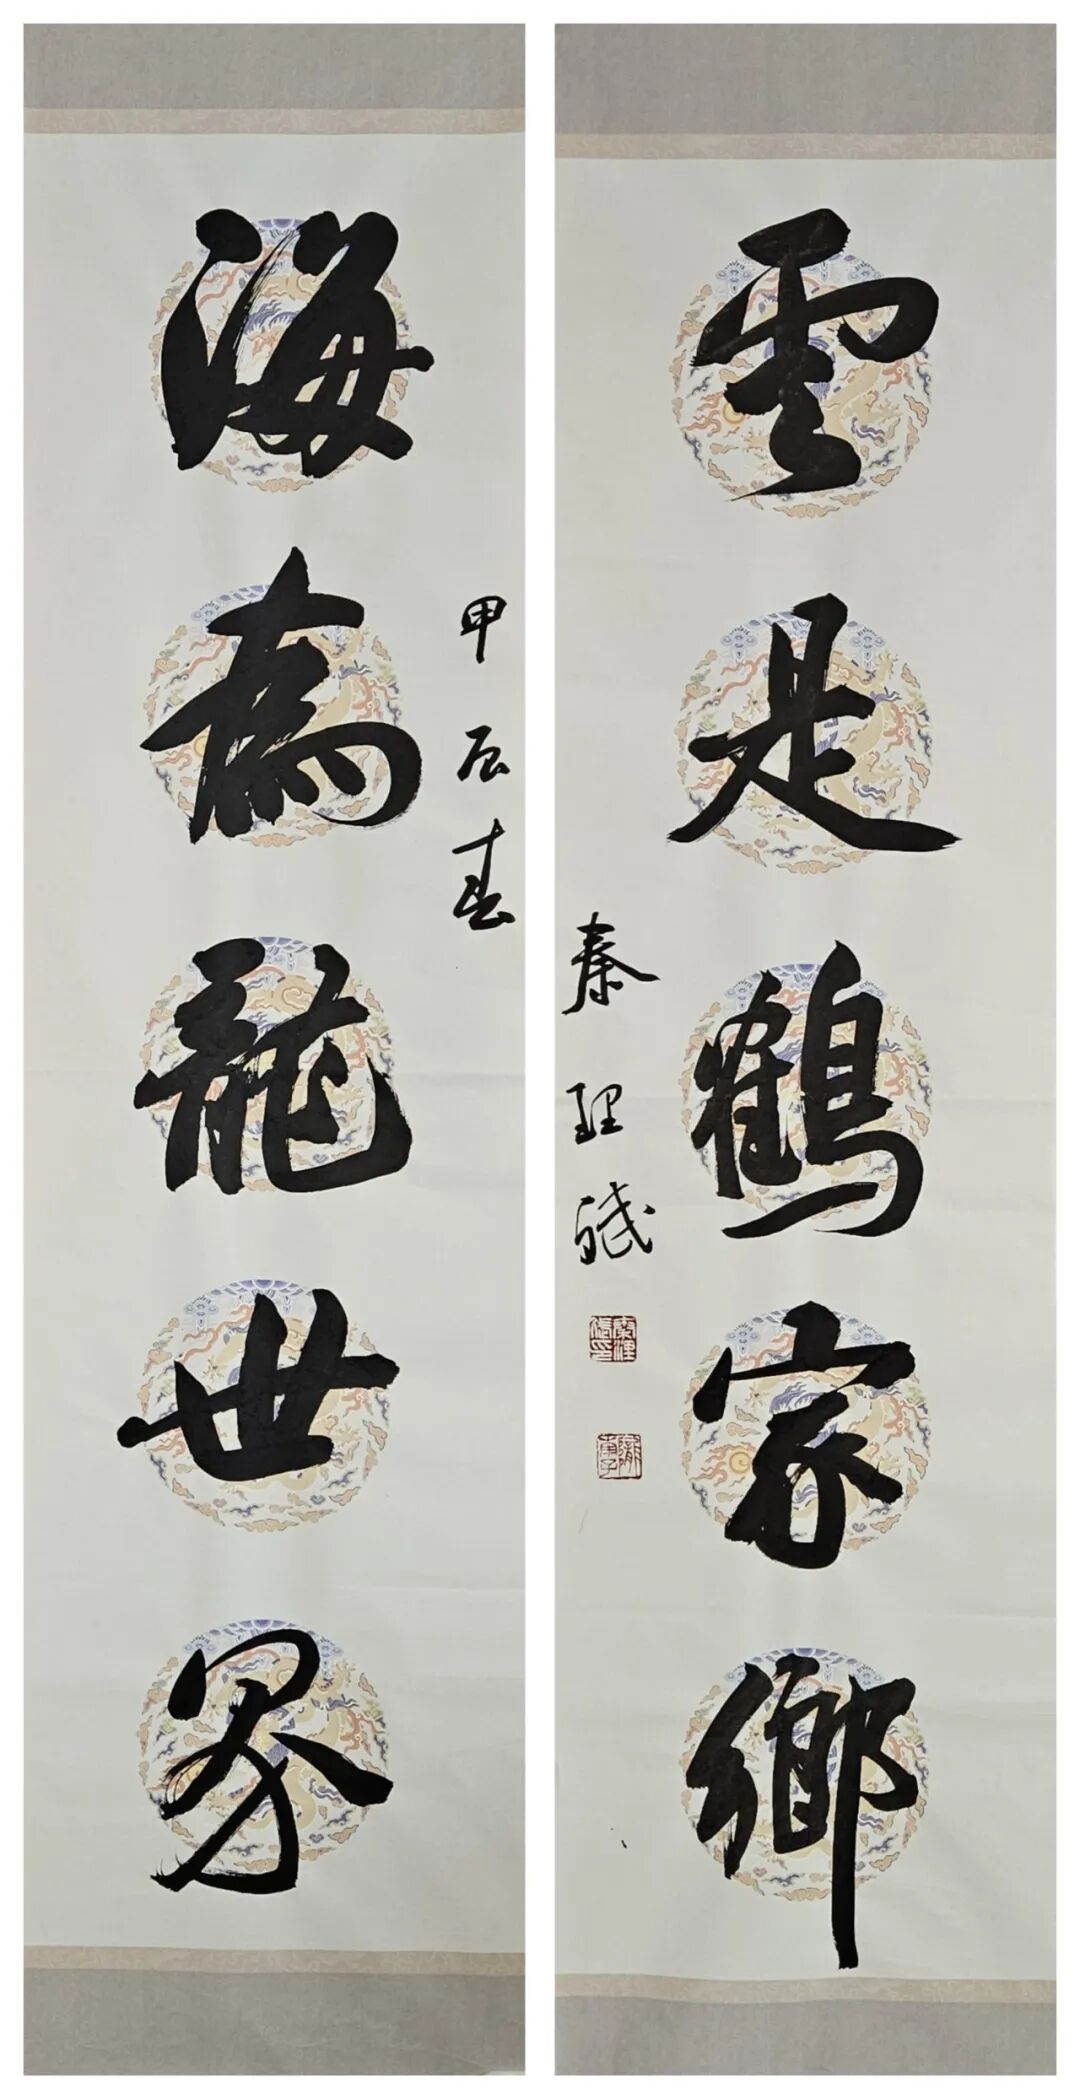 海為龍世界
甲辰春
雲是鶴家鄉
秦理斌